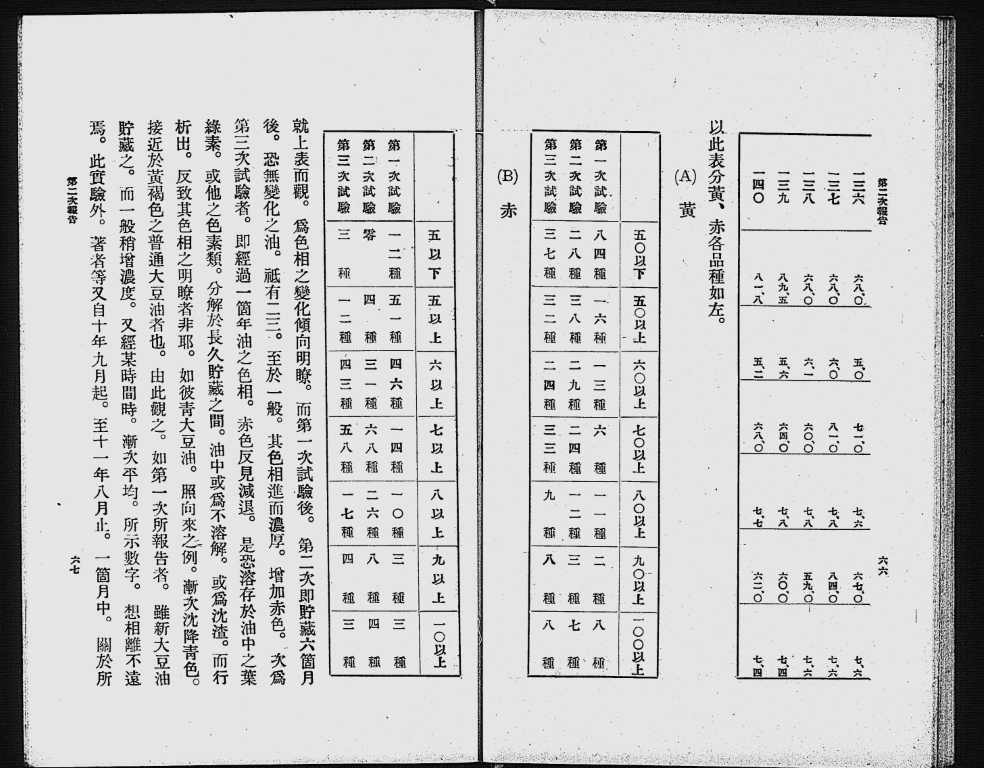 第二次報告
六六
一三六 六八、〇 五、〇 七一、〇 七、六 六七、〇 七、六
一三七 六八、〇 六、〇 八一、〇 七、八 八四、〇 七、六
一三八 六八、〇 六、一 六〇、〇 七、八 五九、〇 七、六
一三九 八九、五 五、六 六四、〇 七、八 六〇、〇 七、四
一四〇 八一、八 五、二 六八、〇 七、七 六二、〇 七、四
以此表分黃、赤各品種如左。
(A) 黃
五〇以下 五〇以上 六〇以上 七〇以上 八〇以上 九〇以上 一〇〇以上
第一次試驗 八四種 一六種 一三種 六種 一一種 二種 八種
第二次試驗 二八種 三八種 二九種 二四種 一二種 三種 七種
第三次試驗 三七種 三二種 二四種 三三種 九種 八種 八種
(B) 赤
五以下 五以上 六以上 七以上 八以上 九以上 一〇以上
第一次試驗 一二種 五一種 四六種 一四種 一〇種 三種 三種
第二次試驗 零 四種 三一種 六八種 二六種 八種 四種
第三次試驗 三種 一二種 四三種 五八種 一七種 四種 三種
就上表而觀。爲色相之變化傾向明瞭。而第一次試驗後。第二次卽貯藏六箇月
後。恐無變化之油。祗有二三。至於一般。其色相進而濃厚。增加赤色。次爲
第三次試驗者。卽經過一箇年油之色相。赤色反見減退。是恐溶存於油中之葉
綠素。或他之色素類。分解於長久貯藏之間。油中或爲不溶解。或爲沈渣。而行
析出。反致其色相之明瞭者非耶。如彼靑大豆油。照向來之例。漸次沈降靑色。
接近於黃褐色之普通大豆油者也。由此觀之。如第一次所報告者。雖新大豆油
貯藏之。而一般稍增濃度。又經某時間時。漸次平均。所示數字。想相離不遠
焉。此實驗外。著者等又自十年九月起。至十一年八月止。一箇月中。關於所
第二次報告
六七